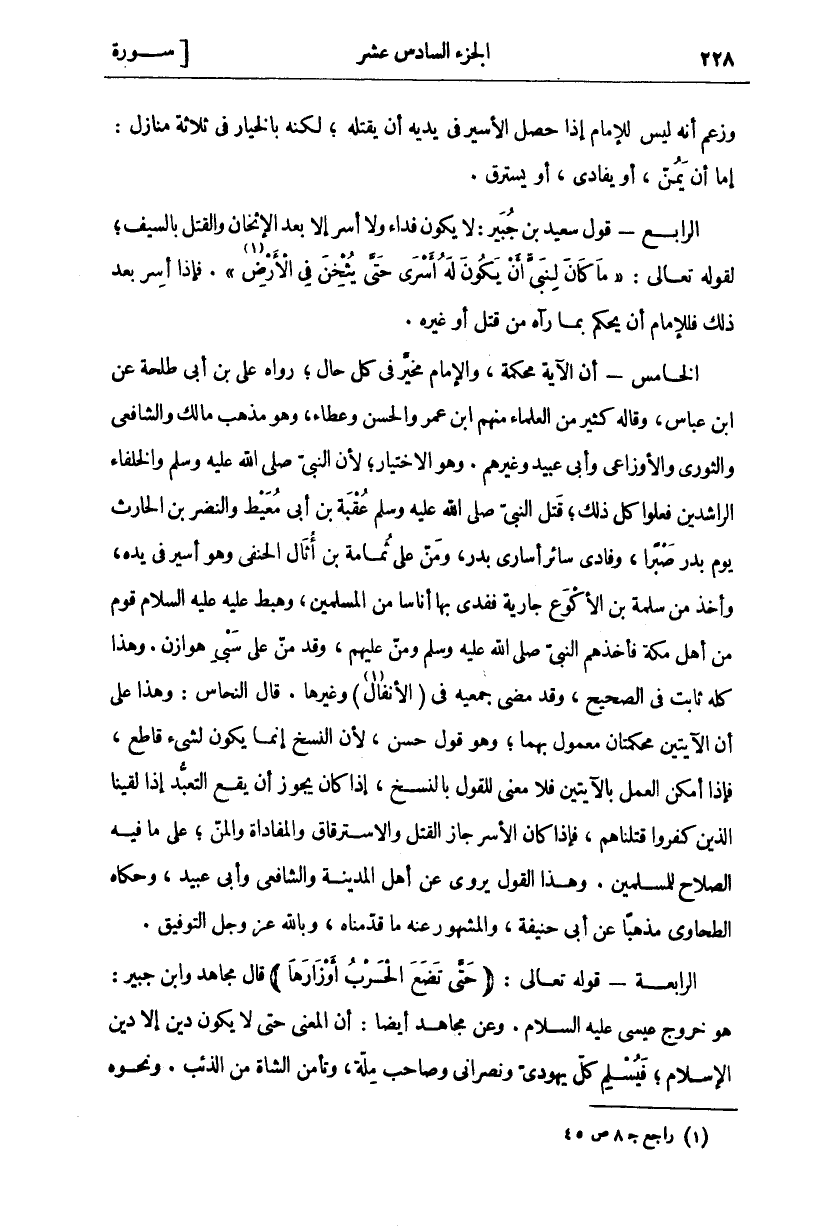 ٢٢٨ الجزء السادس عشر [ ســورة
وزعم أنه ليس للإمام إذا حصل الأسير فى يديه أن يقتله ؛ لكنه بالخيار فى ثلاثة منازل :
إما أن يَمُنّ ، أو يفادى ، أو يسترق .
الرابـع — قول سعيد بن جُبَير : لا يكون فداء ولا أسر إلا بعد الإثخان والقتل بالسيف ؛
لقوله تعـالى : « مَا كَانَ لِنَبِىٍّ أَنْ يَكُونَ لَهُ أَسْرَى حَتَّى يُثْخِنَ فِى الْأَرْضِ(١) » . فإذا أسِر بعد
ذلك فللإمام أن يحكم بمـا رآه من قتل أو غيره .
الخـامس — أن الآية محكمة ، والإمام مخيَّر فى كل حال ؛ رواه على بن أبى طلحة عن
ابن عباس ، وقاله كثير من العلماء منهم ابن عمر والحسن وعطاء ، وهو مذهب مالك والشافعى
والثورى والأوزاعى وأبى عبيد وغيرهم . وهو الاختيار ؛ لأن النبىّ صلى الله عليه وسلم والخلفاء
الراشدين فعلوا كل ذلك ؛ قَتل النبىّ صلى الله عليه وسلم عُقْبَة بن أبى مُعَيْط والنضر بن الحارث
يوم بدر صَبْرًا ، وفادى سائر أسارى بدر ، ومَنّ على ثُمـامة بن أُثَال الحنفى وهو أسير فى يده ،
وأخذ من سلمة بن الأكْوَع جارية ففدى بها أناسا من المسلمين ، وهبط عليه عليه السلام قوم
من أهل مكة فأخذهم النبىّ صلى الله عليه وسلم ومنّ عليهم ، وقد منّ على سَبْىِ هوازن . وهذا
كله ثابت فى الصحيح ، وقد مضى جميعه فى ( الأنفال(١) ) وغيرها . قال النحاس : وهذا على
أن الآيتين محكمتان معمول بهما ؛ وهو قول حسن ، لأن النسخ إنمـا يكون لشىء قاطع ،
فإذا أمكن العمل بالآيتين فلا معنى للقول بالنسـخ ، إذا كان يجوز أن يقـع التعبُّد إذا لقينا
الذين كفروا قتلناهم ، فإذا كان الأسر جاز القتل والاسـترقاق والمفاداة والمنّ ؛ على ما فيـه
الصلاح للمسـلمين . وهـذا القول يروى عن أهل المدينـة والشافعى وأبى عبيد ، وحكاه
الطحاوى مذهبًا عن أبى حنيفة ، والمشهور عنه ما قدّمناه ، وبالله عز وجل التوفيق .
الرابعـة — قوله تعـالى : ﴿ حَتَّى تَضَعَ الْحَرْبُ أَوْزَارَهَا ﴾ قال مجاهد وابن جبير :
هو خروج عيسى عليه السـلام . وعن مجاهـد أيضا : أن المعنى حتى لا يكون دين إلا دين
الإسـلام ؛ فَيُسْـلِم كلّ يهودىّ ونصرانى وصاحب مِلّة ، وتأمن الشاة من الذئب . ونحـوه
(١) راجع جـ ٨ ص ٤٥